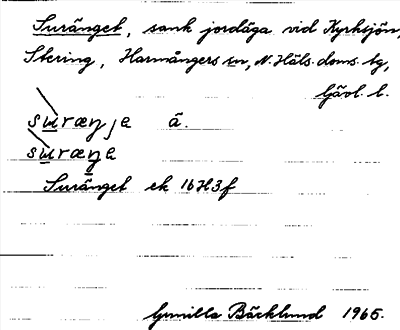 Suränget, sank jordäga vid Kyrksjön,
Stering, Harmångers sn, N. Häls. doms. tg,
Gävl. l.
suræŋje ä.
suræŋe
Suränget ek 16H3f
Gunilla Bäcklund 1965.